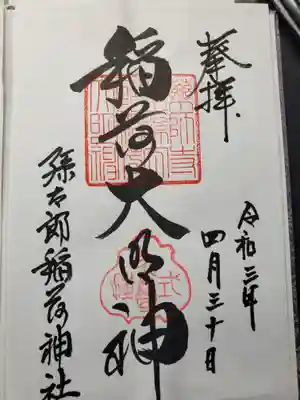 奉拝
令和三年
四月三十日
稲荷大明神
孫太郎稲荷神社